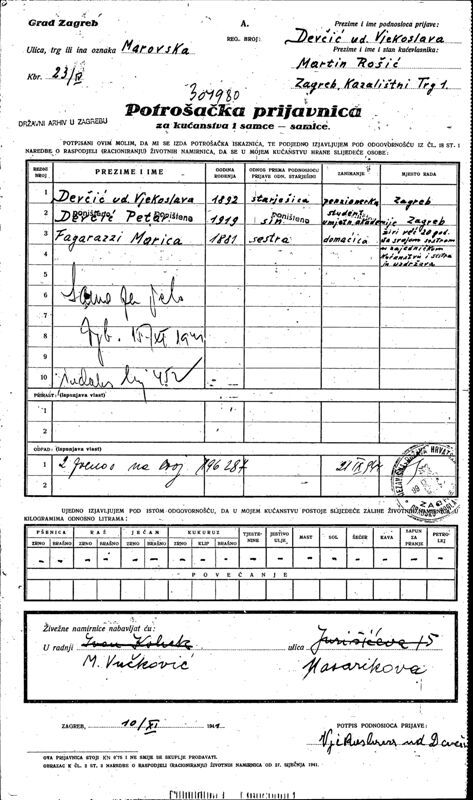 Grad Zagreb
A.
REG. BROJ:
Prezime i ime podnosioca prijave:
Devčić ud. Vjekoslava
Ulica, trg ili ina oznaka Marovska
Prezime i ime i stan kućevlasnika:
Martin Rošić
Kbr. 23/II
Zagreb, Kazališni Trg 1.
301980
Potrošačka prijavnica
za kućanstva i samce — samice.
DRŽAVNI ARHIV U ZAGREBU
POTPISANI OVIM MOLIM, DA MI SE IZDA POTROŠAČKA ISKAZNICA, TE PODJEDNO IZJAVLJUJEM POD ODGOVORNOŠĆU IZ ČL. 18 ST. 1
NAREDBE O RASPODJELI (RACIONIRANJU) ŽIVOTNIH NAMIRNICA, DA SE U MOJEM KUĆANSTVU HRANE SLIJEDEĆE OSOBE:
REDNI BROJ PREZIME I IME GODINA RODJENJA ODNOS PREMA PODNOSIOCU PRIJAVE ODN. STARJEŠINI ZANIMANJE MJESTO RADA
1 Devčić ud. Vjekoslava 1892 starješica penzionerka Zagreb
2 Devčić Petar 1919 sin student umjetn. akademije Zagreb
poništeno poništeno poništeno
3 Fagarazzi Marica 1881 sestra domaćica živi već 20 god.
sa svojom sestrom
u zajedničkom
kućanstvu
4
5
6
7
8
9
10
PRIRAST: (ispunjava vlast)
1
2
ODPAD: (ispunjava vlast)
1 2 prenos na broj 196287
2
UJEDNO IZJAVLJUJEM POD ISTOM ODGOVORNOŠĆU, DA U MOJEM KUĆANSTVU POSTOJE SLIJEDEĆE ZALIHE ŽIVOTNIH NAMIRNICA U
KILOGRAMIMA ODNOSNO LITRAMA:
PŠENICA RAŽ JEČAM KUKURUZ TJESTENINE JESTIVO ULJE MAST SOL ŠEĆER KAVA SAPUN ZA PRANJE PETROLEJ
ZRNO BRAŠNO ZRNO BRAŠNO ZRNO BRAŠNO ZRNO KLIP BRAŠNO
- - - - - - - - - - - - - - - - -
POVEĆANJE
Živežne namirnice nabavljat ću:
U radnji Ivan ulica Jurišićeva 15
M. Vučković Masarikova
ZAGREB, 10/XI 1941
POTPIS PODNOSIOCA PRIJAVE:
Vjekoslava ud Devčić
OVA PRIJAVNICA STOJI KN 0'75 I NE SMIJE SE SKUPLJE PRODAVATI.
OBRAZAC K ČL. 2 ST. 2 NAREDBE O RASPODJELI (RACIONIRANJU) ŽIVOTNIH NAMIRNICA OD 27. SIJEČNJA 1941.